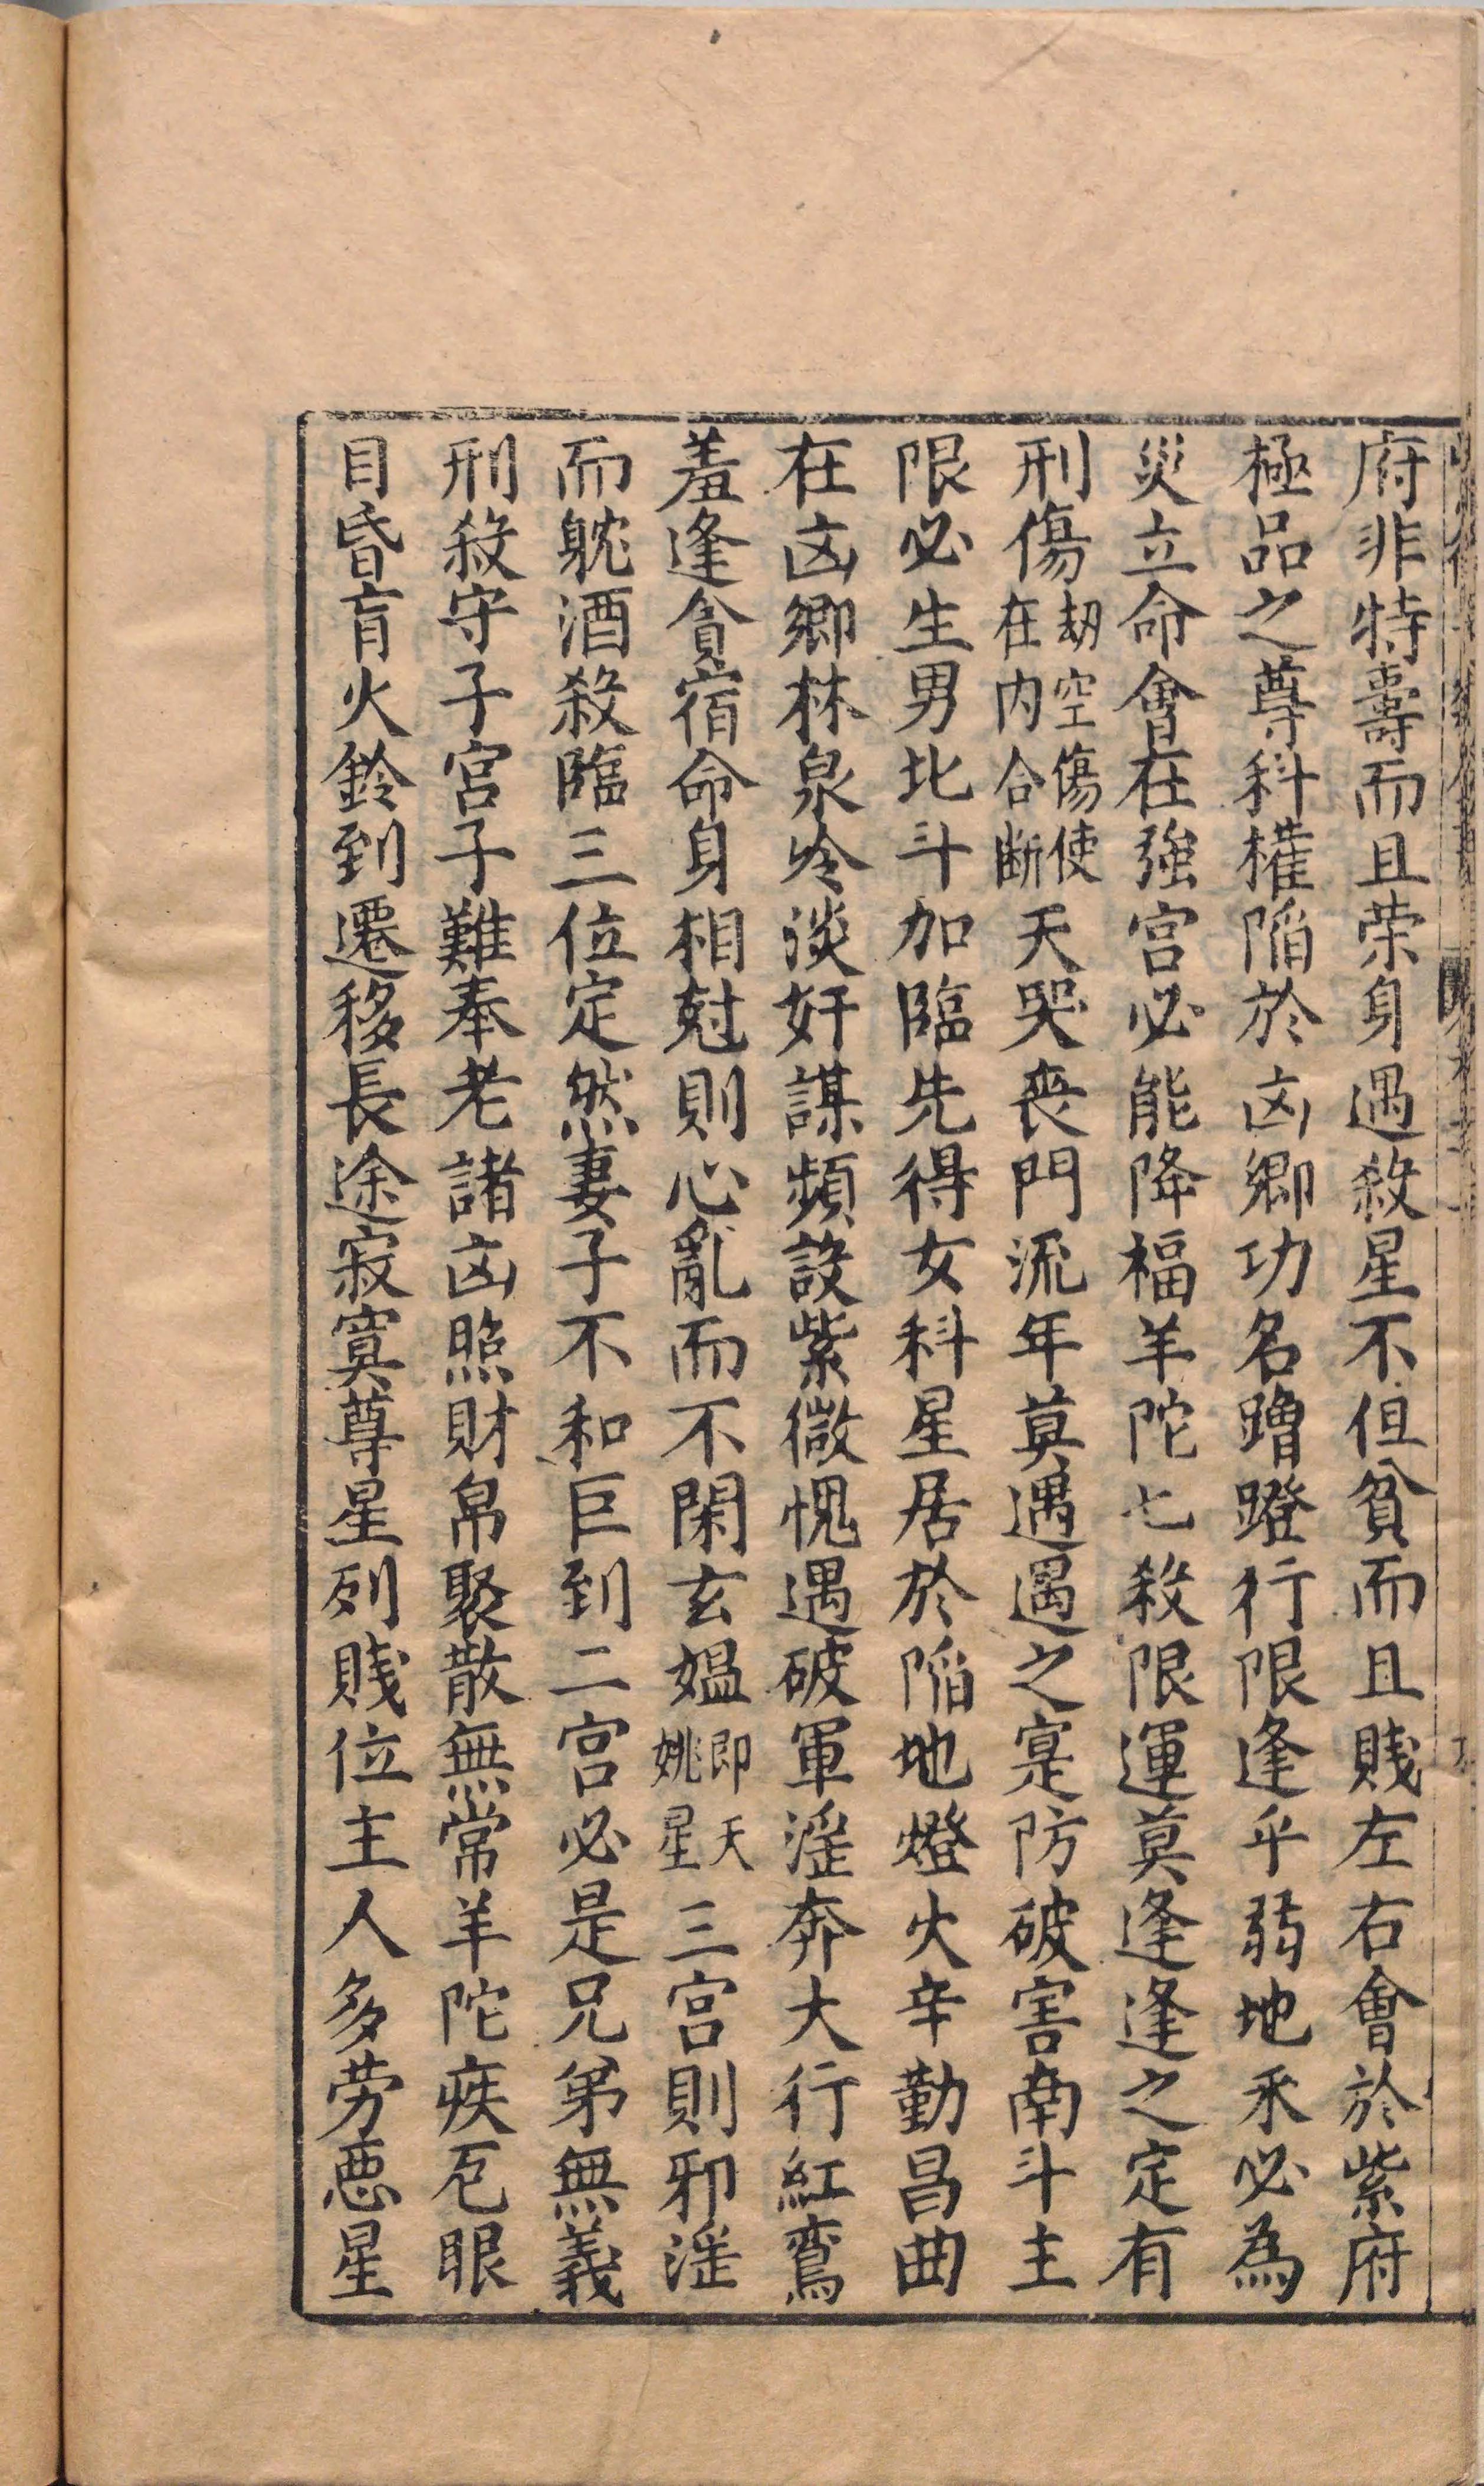 府非特壽而且荣身遇殺星不但貧而且賤左右會於紫府
極品之尊科權陷於凶鄉功名蹭蹬行限逢乎弱地未必為
災立命會在強宮必能降福羊陀七殺限運莫逢逢之定有
刑傷劫空傷使在内合断天哭喪門流年莫遇遇之寔防破害南斗主
限必生男北斗加臨先得女科星居於陷地燈火辛勤昌曲
在凶鄉林泉冷淡奸謀頻設紫微愧遇破軍滛奔大行紅鸞
羞逢貪宿命身相尅則心亂而不閑玄媪即天姚星三宮則邪滛
而躭酒殺臨三位定然妻子不和巨到二宮必是兄弟無義
刑殺守子宮子難奉老諸凶照財帛聚散無常羊陀疾厄眼
目昏盲火鈴到遷移長途寂寞尊星列賤位主人多劳惡星